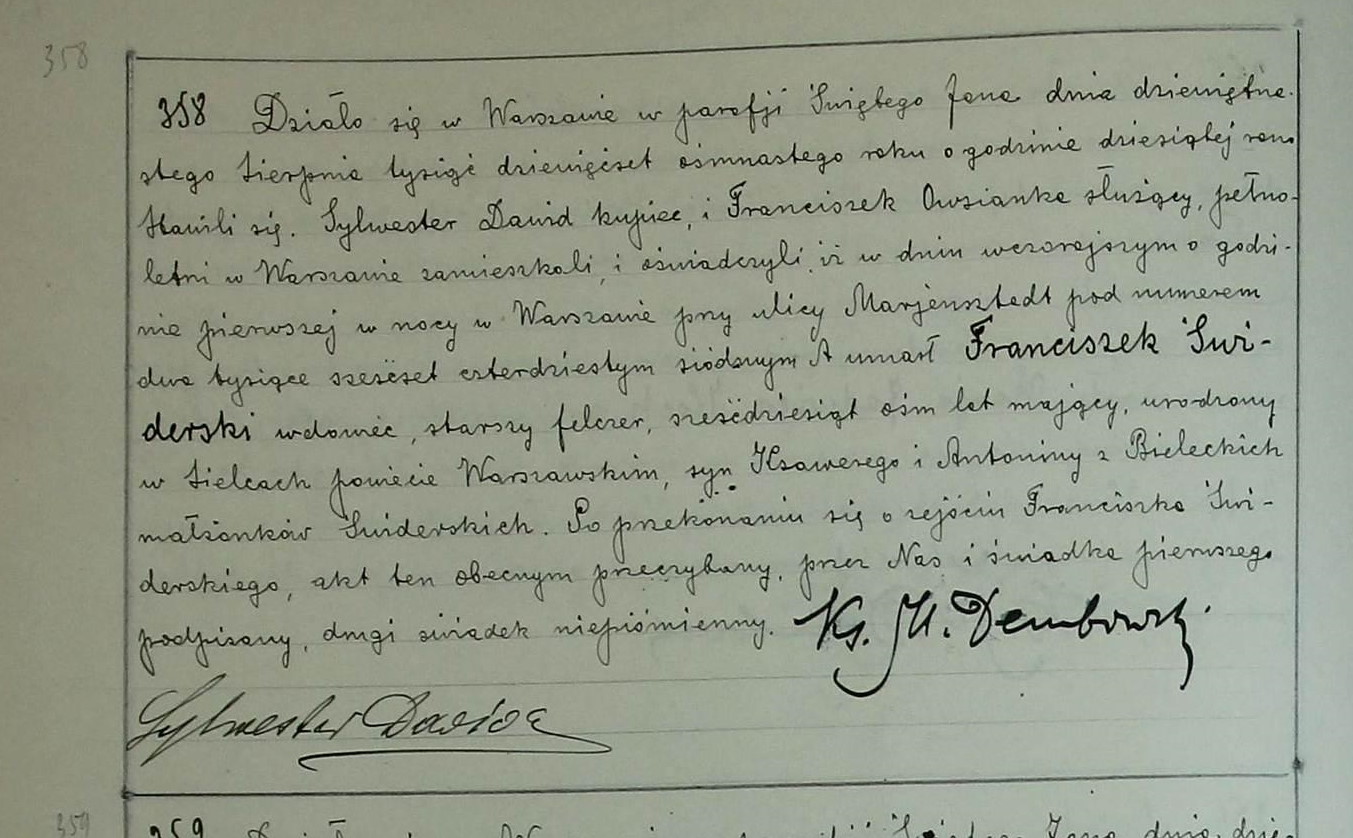 358
358 Działo się w Warszawie w parafji Świętego Jana dnia dziewiętna-
stego Sierpnia tysiąć dziewięćset ośmnastego roku o godzinie dziesiątej rano
Stawili się. Sylwester Dawid kupiec, i Franciszek Owsianka służący, pełno-
letni w Warszawie zamieszkali, i oświadczyli, iż w dniu wczorajszym o godzi-
nie pierwszej w nocy w Warszawie przy ulicy Marjensztedt pod numerem
dwa tysiące sześćset czterdziestym siódmym A umarł Franciszek Świ-
derski wdowiec, starszy felczer, sześćdziesiąt ośm lat mający, urodzony
w Sielcach powiecie Warszawskim, syn Ksawerego i Antoniny z Bieleckich
małżonków Świderskich. Po przekonaniu się o zejściu Franciszka Świ-
derskiego, akt ten obecnym przeczytany, przez Nas i świadka pierwszego
podpisany, drugi świadek niepiśmienny. Ks. M. Dembowski
Sylwester Dawid
359
359